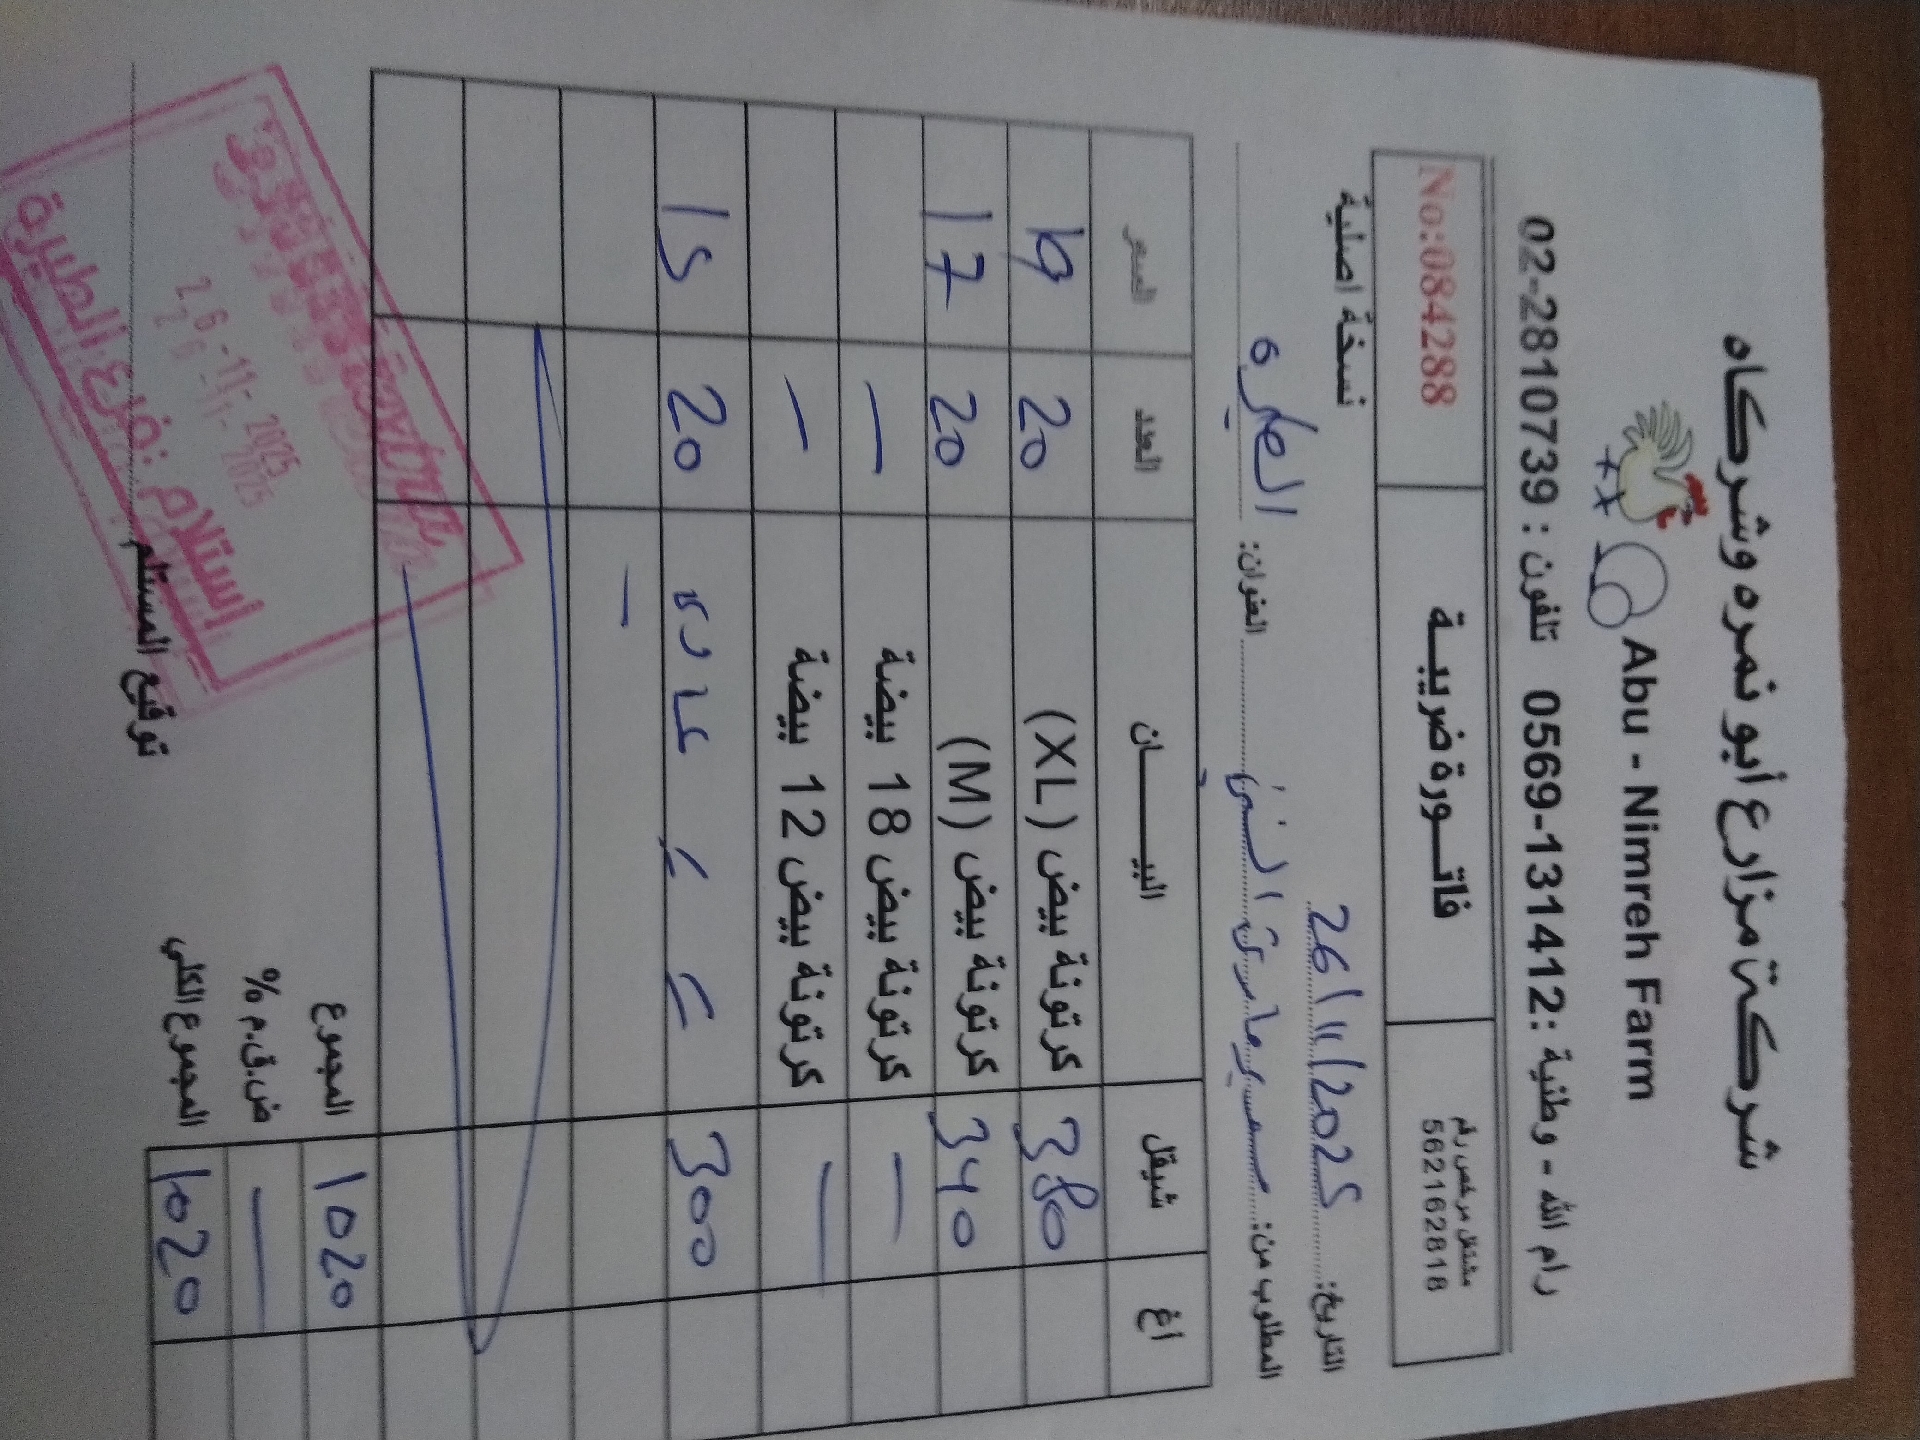 شركة مزارع أبو نمره وشركاه
Abu - Nimreh Farm
رام الله - وطنية :0569-131412 تلفون : 02-2810739
مشتغل مرخص رقم
562162818
فاتورة ضريبية
No:084288
التاريخ: 26/11/2025
نسخة اصلية
المطلوب من: سوبرماركت العنوان: الطيره
شيقل اغ البيان العدد السعر
380 كرتونة بيض (XL) 20 19
340 كرتونة بيض (M) 20 17
— كرتونة بيض 18 بيضة —
— كرتونة بيض 12 بيضة —
300 = = عادي 20 15
—
المجموع 1020
ض.ق.م % —
المجموع الكلي 1020
توقيع المستلم
26-11-2025
استلام : فرع الطيرة